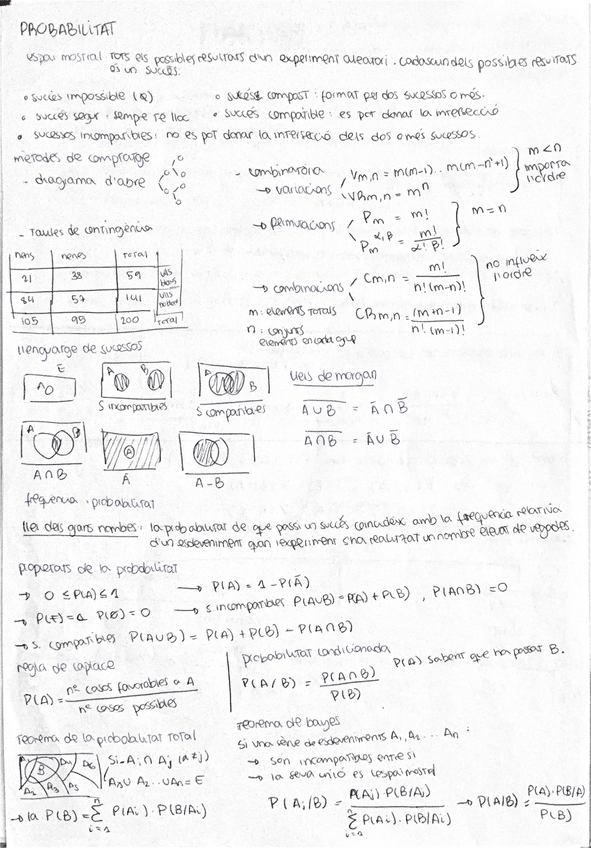 PROBABILITAT
espai mostral tots els possibles resultats d'un experiment aleatori. cadascun dels possibles resultats
és un succés.
• succés impossible (Ø) • succés compost: format per dos sucessos o més.
• succés segur: sempre té lloc • succés compatible: es pot donar la intersecció
• sucessos incompatibles: no es pot donar la intersecció dels dos o més sucessos.
mètodes de comptatge
- diagrama d'abre
- combinatòria
→ variacions Vm,n = m(m-1)... m(m-n+1)
VRm,n = m^n
m < n
importa
l'ordre
→ permutacions Pm = m!
Pm^α,β = m! / α! β!
m = n
→ combinacions Cm,n = m! / n!(m-n)!
CRm,n = (m+n-1) / n!(m-1)!
no influeix
l'ordre
m: elements totals
n: conjunts
elements en cada grup
- Taules de contingència
nens nenes total
21 38 59 ulls blaus
84 57 141 ulls
105 95 200 total
llenguatge de sucessos
E
A
A B
S incompatibles
A B
S compatibles
A B
A ∩ B
A
Ā
A - B
lleis de morgan
A̅ ̅∪̅ ̅B̅ = Ā ∩ B̅
A̅ ̅∩̅ ̅B̅ = Ā ∪ B̅
frequència i probabilitat
llei dels grans nombres: la probabilitat de que passi un succés coincideix amb la frequència relativa
d'un esdeveniment quan l'experiment s'ha realitzat un nombre elevat de vegades.
propietats de la probabilitat
→ 0 ≤ P(A) ≤ 1 → P(A) = 1 - P(Ā)
→ P(E) = 1 P(Ø) = 0 → s. incompatibles P(A∪B) = P(A) + P(B) , P(A∩B) = 0
→ s. compatibles P(A∪B) = P(A) + P(B) - P(A∩B)
regla de laplace
P(A) = nº casos favorables a A / nº casos possibles
probabilitat condicionada
P(A/B) = P(A∩B) / P(B)
P(A) sabent que ha passat B.
Teorema de la probabilitat total
A1 B A4 A6
A2 A3 A5
Si Ai ∩ Aj (i ≠ j)
A1 ∪ A2 ... ∪ An = E
→ la P(B) = n Σ i=1 P(Ai) · P(B/Ai)
Teorema de bayes
Si una sèrie de esdeveniments A1, A2 ... An :
→ son incompatibles entre si
→ la seva unió és l'espai mostral
P(Ai/B) = P(Ai) · P(B/Ai) / n Σ i=1 P(Ai) · P(B/Ai) → P(A/B) = P(A) · P(B/A) / P(B)